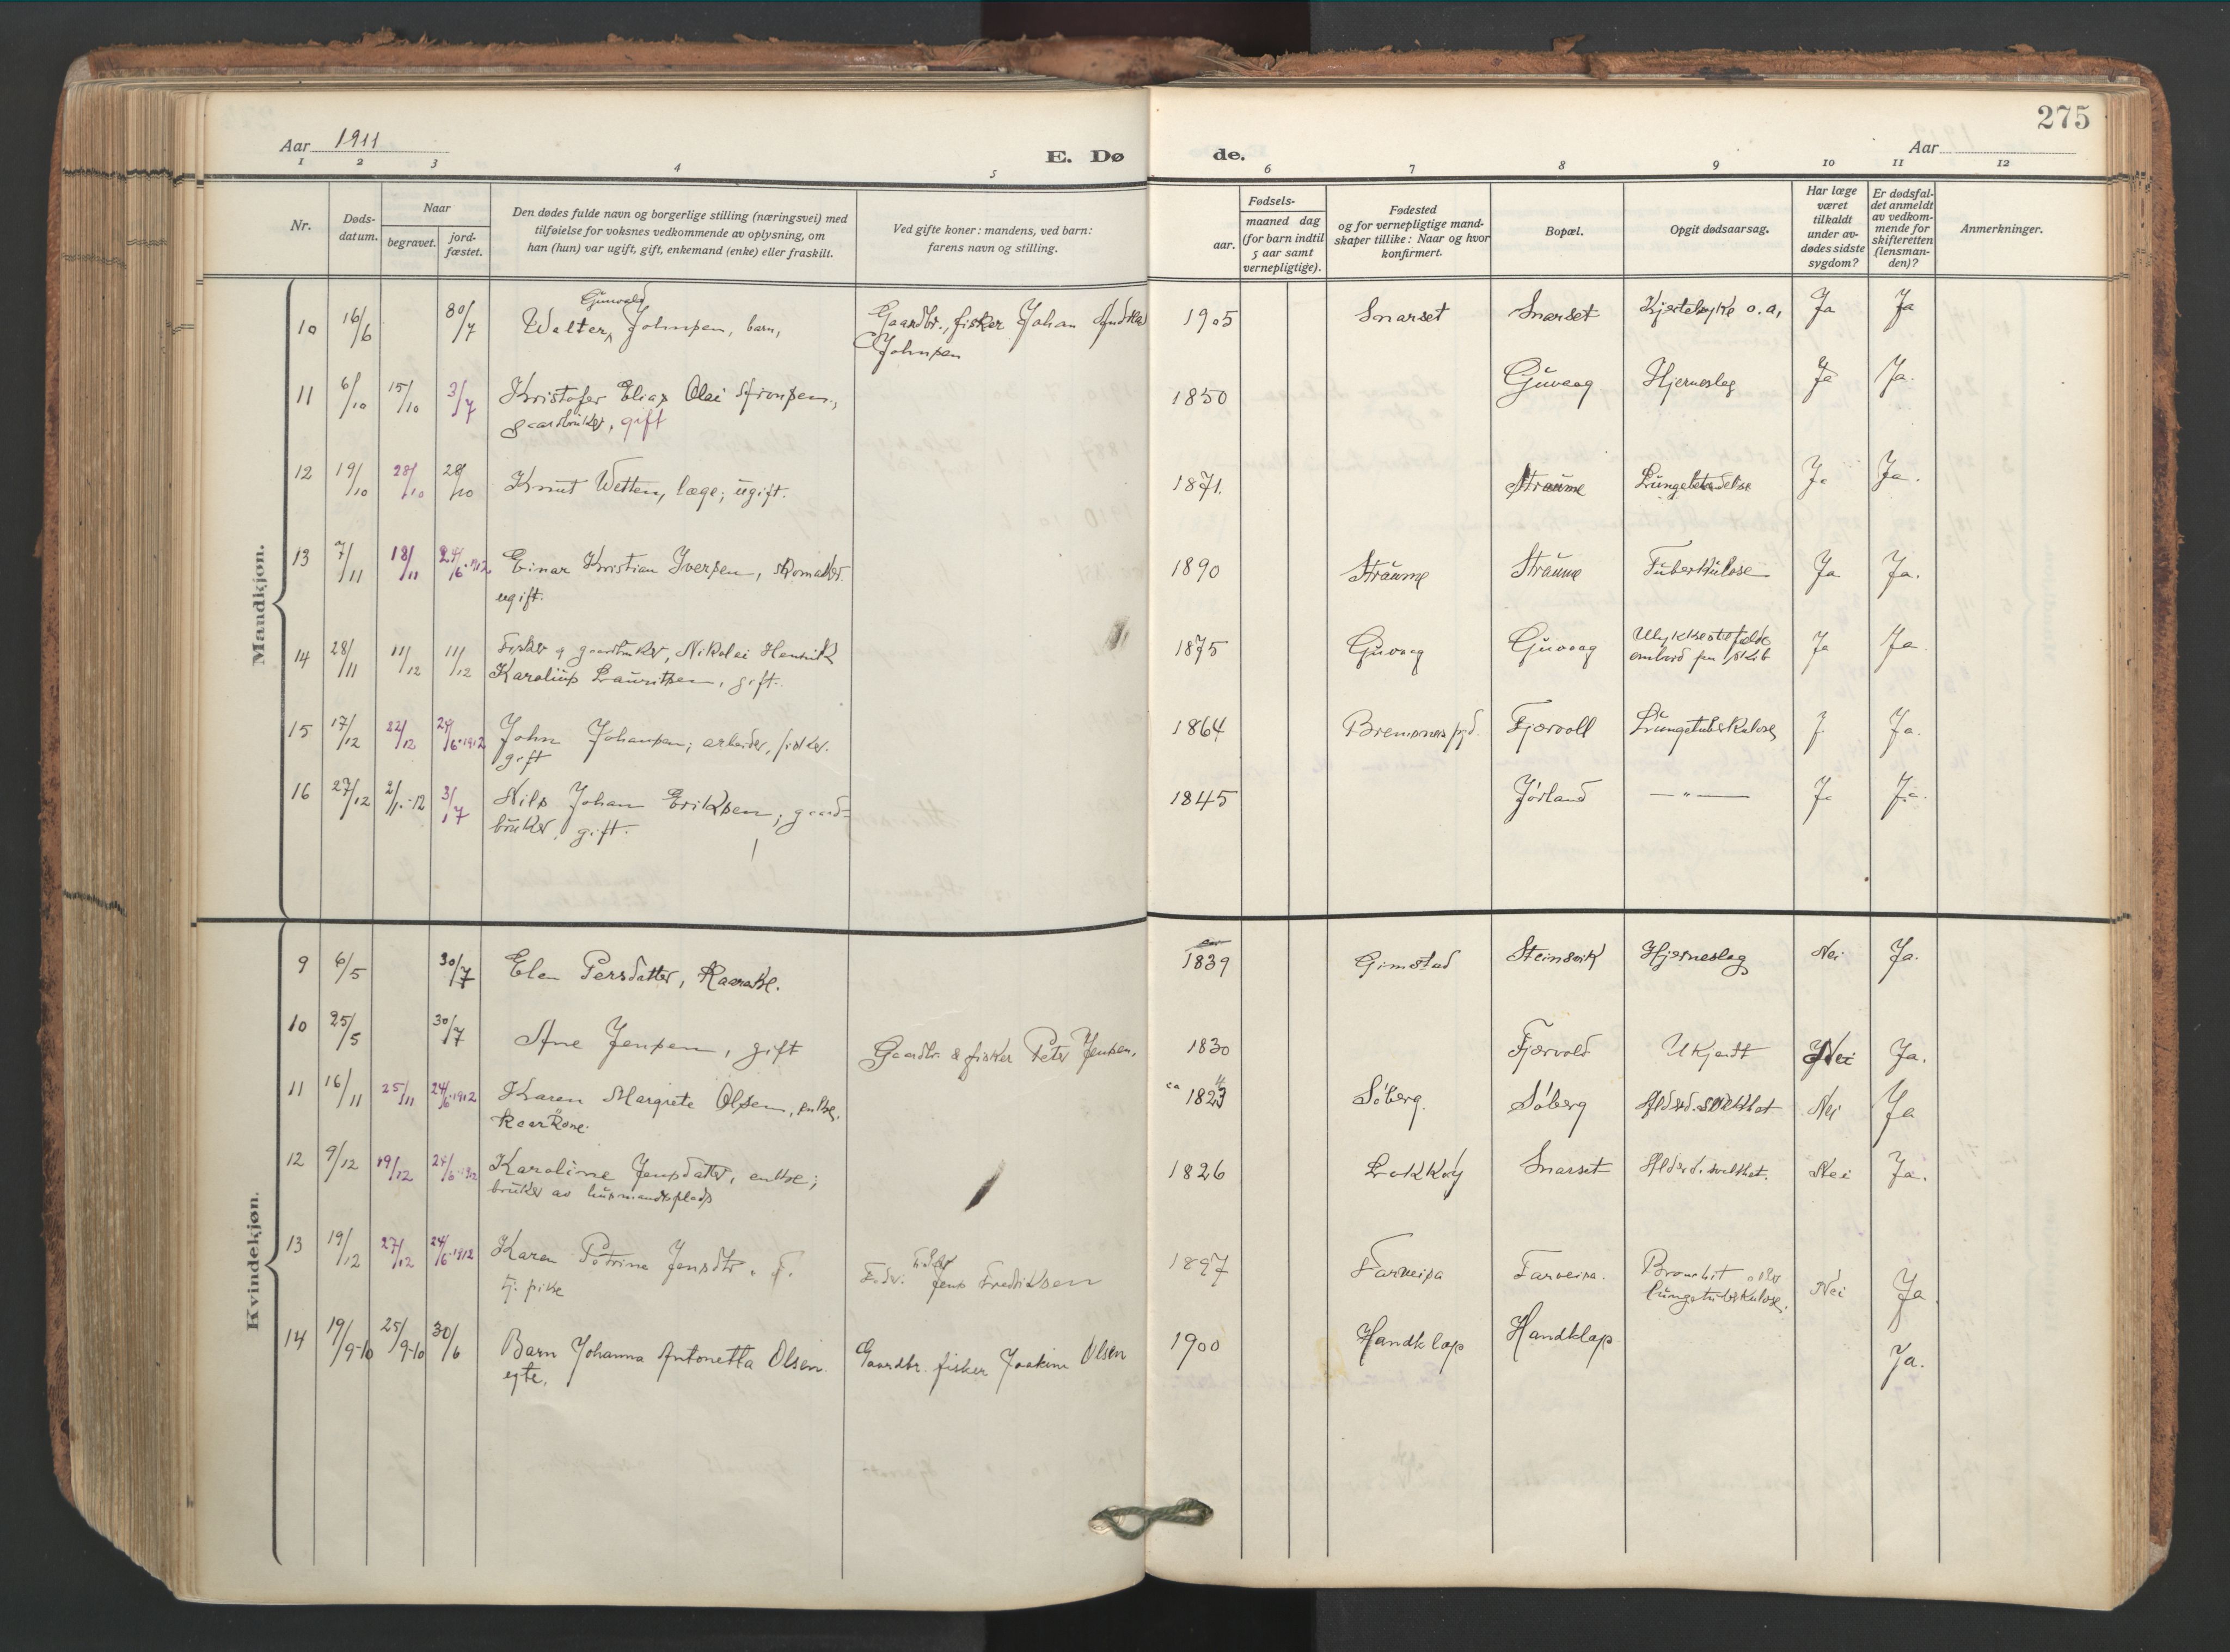 275
Aar 1911
E. Døde.
Aar
1 2 3 4 5 6 7 8 9 10 11 12
Nr.
Døds-
datum.
Naar
begravet.
jord-
fæstet.
Den dødes fulde navn og borgerlige stilling (næringsvei) med
tilføielse for voksnes vedkommende av oplysning, om
han (hun) var ugift, gift, enkemand (enke) eller fraskilt.
Ved gifte koner: mandens, ved barn:
farens navn og stilling.
Fødsels-
aar.
maaned dag
(for barn indtil
5 aar samt
vernepligtige).
Fødested
og for vernepligtige mand-
skaper tillike: Naar og hvor
konfirmert.
Bopæl.
Opgit dødsaarsag.
Har læge
været
tilkaldt
under av-
dødes sidste
sygdom?
Er dødsfal-
det anmeldt
av vedkom-
mende for
skifteretten
(lensman-
den)?
Anmerkninger.
Mandkjøn.
Gunvald
10 16/6 30/7 Walter, Johnsen, barn, Gaardbr., fisker Johan 1905 Snarset Snarset o.a, Ja Ja
Johnsen
11 6/10 15/10 3/7 Kristofer Elias Olai 1850 Guvaag Hjerneslag Ja Ja.
gaardbruker, gift
12 19/10 28/10 28/10 Knut Wetten, læge; ugift. 1871. Straume Lungebetændelse Ja Ja.
13 7/11 18/11 24/6-1912 Einar Kristian Iversen, skomaker. 1890 Straume Straume Tuberkulose Ja Ja.
ugift.
14 28/11 11/12 11/12 Fisker og gaardbruker, Nikolai Henrik 1875 Guvaag Guvaag Ulykkestilfælde Ja Ja
Karolius Lauritsen, gift. ombord paa skib
15 17/12 22/12 24/6-1912 John Johansen; arbeider, fisker. 1864 Bremsnes pgd. Fjærvoll Lungetuberkulose J. Ja.
gift
16 27/12 2/1-12 3/7 Nils Johan Eriksen; gaard- 1845 Jørland — " — Ja Ja.
bruker, gift.
Kvindekjøn.
9 6/5 30/7 Elen Persdatter, 1839 Gimstad Steinsvik Hjerneslag Nei Ja.
10 25/5 30/7 Ane Jensen, gift Gaardbr. & fisker Peter Jensen, 1830 Fjærvold Ukjendt Nei Ja.
11 16/11 25/11 24/6-1912 Karen Margrete Olsen, enke, ca 1823 4 Søberg. Søberg Alderd. svakhet Nei Ja
Kaarkone.
12 9/12 19/12 24/6-1912 Karoline Jensdatter, enke; 1826 Lokkøy Snarset Alderd. svakhet. Nei Ja.
bruker av husmandsplads
13 19/12 27/12 24/6-1912 Karen Petrine Jensdtr. Fisker Jens Fredriksen 1897 Farveisa Farveisa. Bronchit eller Nei Ja.
tj. pike Lungetuberkulose.
14 19/9-10 25/9-10 30/6 Barn Johanna Antonetta Olsen Gaardbr. fisker Joakim Olsen 1900 Handklap Handklap Ja.
egte.